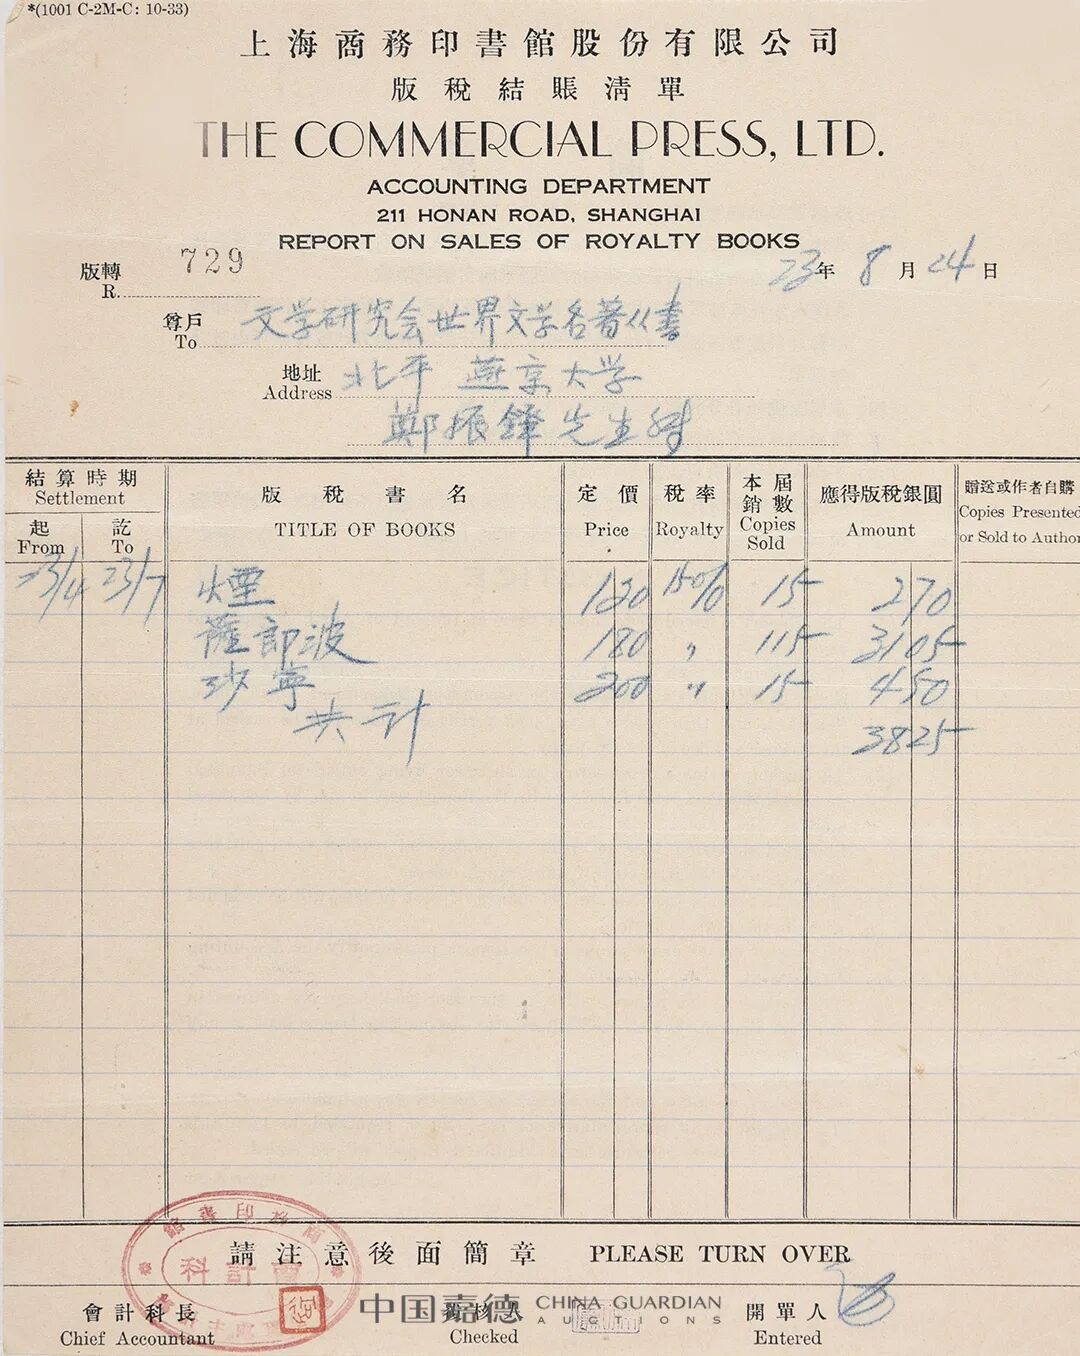 *(1001 C-2M-C: 10-33)
上海商務印書館股份有限公司
版稅結賬清單
THE COMMERCIAL PRESS, LTD.
ACCOUNTING DEPARTMENT
211 HONAN ROAD, SHANGHAI
REPORT ON SALES OF ROYALTY BOOKS
版轉 R. 729
23年 8月 24日
尊戶 To 文学研究会世界文学名著丛書
地址 Address 北平 燕京大学
鄭振鐸先生
結算時期 Settlement
起 From
訖 To
版稅書名 TITLE OF BOOKS
定價 Price
稅率 Royalty
本屆銷數 Copies Sold
應得版稅銀圓 Amount
贈送或作者自購 Copies Presented or Sold to Author
23/4 23/7 煙 120 15% 15 270
薩郎波 180 〃 115 3105
沙寧 200 〃 15 450
共計 3825
請注意後面簡章 PLEASE TURN OVER
商務印書館
會計科
會計科長 Chief Accountant
覆核人 Checked
開單人 Entered
中国嘉德 CHINA GUARDIAN AUCTIONS